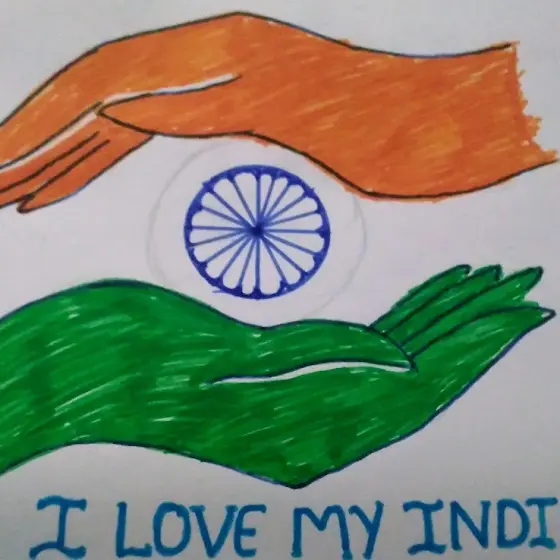 I LOVE MY INDI